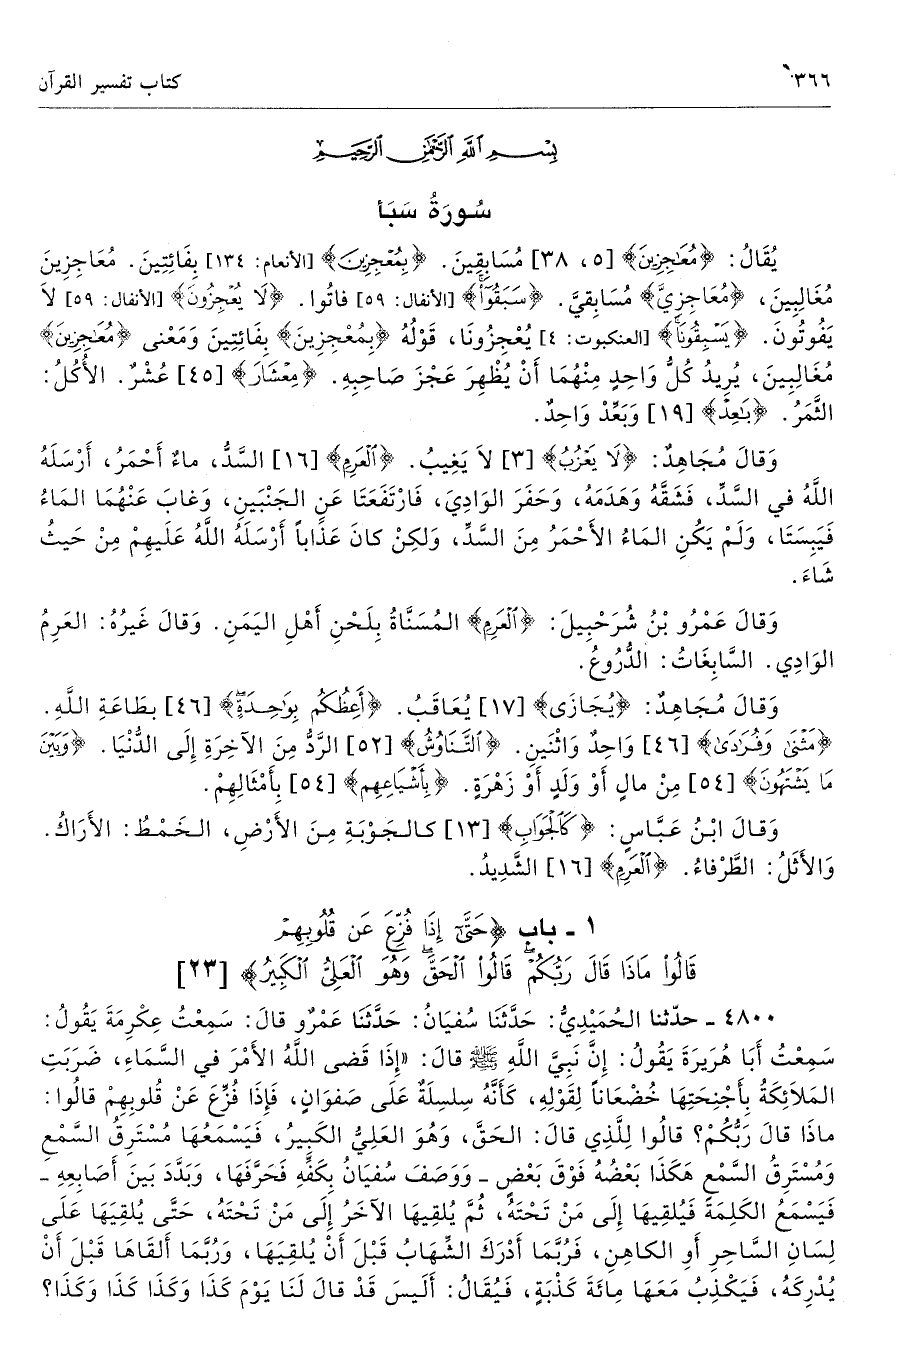 ٣٦٦ كتاب تفسير القرآن
بِسْمِ اللَّهِ الرَّحْمَٰنِ الرَّحِيمِ
سُورَةُ سَبَأ
يُقَالُ: ﴿مُعَٰجِزِينَ﴾ [٥، ٣٨] مُسَابِقِينَ. ﴿بِمُعْجِزِينَ﴾ [الأنعام: ١٣٤] بِفَائِتِينَ. مُعَاجِزِينَ
مُغَالِبِينَ، ﴿مُعَاجِزِيَّ﴾ مُسَابِقِيَّ. ﴿سَبَقُوٓا۟﴾ [الأنفال: ٥٩] فاتُوا. ﴿لَا يُعْجِزُونَ﴾ [الأنفال: ٥٩] لاَ
يَفُوتُونَ. ﴿يَسْبِقُونَا﴾ [العنكبوت: ٤] يُعْجِزُونَا، قَوْلُهُ ﴿بِمُعْجِزِينَ﴾ بِفَائتِينَ وَمَعْنى ﴿مُعَٰجِزِينَ﴾
مُغَالِبِينَ، يُرِيدُ كُلُّ وَاحِدٍ مِنْهُمَا أَنْ يُظْهِرَ عَجْزَ صَاحِبِهِ. ﴿مِعْشَارَ﴾ [٤٥] عُشْرٌ. الأُكُلُ:
الثَّمَرُ. ﴿بَٰعِدْ﴾ [١٩] وَبَعِّدْ وَاحِدٌ.
وَقالَ مُجَاهِدٌ: ﴿لَا يَعْزُبُ﴾ [٣] لاَ يَغِيبُ. ﴿ٱلْعَرِمِ﴾ [١٦] السَّدُّ، ماءٌ أَحْمَرُ، أَرْسَلَهُ
اللَّهُ في السَّدِّ، فَشَقَّهُ وَهَدَمَهُ، وَحَفَرَ الوَادِيَ، فَارْتَفَعَتَا عَنِ الجَنْبَينِ، وَغابَ عَنْهُمَا المَاءُ
فَيَبِسَتَا، وَلَمْ يَكُنِ المَاءُ الأَحْمَرُ مِنَ السَّدِّ، وَلكِنْ كانَ عَذَاباً أَرْسَلَهُ اللَّهُ عَلَيهِمْ مِنْ حَيثُ
شَاءَ.
وَقالَ عَمْرُو بْنُ شُرَحْبِيلَ: ﴿ٱلْعَرِمِ﴾ المُسَنَّاةُ بِلَحْنِ أَهْلِ اليَمَنِ. وَقالَ غَيرُهُ: العَرِمُ
الوَادِي. السَّابِغَاتُ: الدُّرُوعُ.
وَقالَ مُجَاهِدٌ: ﴿يُجَازَى﴾ [١٧] يُعَاقَبُ. ﴿أَعِظُكُم بِوَٰحِدَةٍ﴾ [٤٦] بِطَاعَةِ اللَّهِ.
﴿مَثْنَىٰ وَفُرَٰدَىٰ﴾ [٤٦] وَاحِدٌ وَاثْنَينِ. ﴿ٱلتَّنَاوُشُ﴾ [٥٢] الرَّدُّ مِنَ الآخِرَةِ إِلَى الدُّنْيَا. ﴿وَبَيْنَ
مَا يَشْتَهُونَ﴾ [٥٤] مِنْ مالٍ أَوْ وَلَدٍ أَوْ زَهْرَةٍ. ﴿بِأَشْيَاعِهِم﴾ [٥٤] بِأَمْثَالِهِمْ.
وَقالَ ابْنُ عَبَّاسٍ: ﴿كَٱلْجَوَابِ﴾ [١٣] كالـجَوْبَةِ مِنَ الأَرْضِ، الـخَمْطُ: الأَرَاكُ.
وَالأَثْلُ: الطَّرْفاءُ. ﴿ٱلْعَرِمِ﴾ [١٦] الشَّدِيدُ.
١ ـ باب ﴿حَتَّىٰٓ إِذَا فُزِّعَ عَن قُلُوبِهِمْ
قَالُوا۟ مَاذَا قَالَ رَبُّكُمْ قَالُوا۟ ٱلْحَقَّ وَهُوَ ٱلْعَلِيُّ ٱلْكَبِيرُ﴾ [٢٣]
٤٨٠٠ ـ حدّثنا الحُمَيدِيُّ: حَدَّثَنَا سُفيَانُ: حَدَّثَنَا عَمْرٌو قالَ: سَمِعْتُ عِكْرِمَةَ يَقُولُ:
سَمِعْتُ أَبَا هُرَيرَةَ يَقُولُ: إِنَّ نَبِيَّ اللَّهِ ﷺ قالَ: «إِذَا قَضى اللَّهُ الأَمْرَ في السَّماءِ، ضَرَبَتِ
المَلاَئِكَةُ بِأَجْنِحَتِهَا خُضْعَاناً لِقَوْلِهِ، كَأَنَّهُ سِلسِلَةٌ عَلَى صَفوَانٍ، فَإِذَا فُزِّعَ عَنْ قُلوبِهِمْ قالُوا:
ماذَا قالَ رَبُّكُمْ؟ قالُوا لِلَّذِي قالَ: الحَقَّ، وَهُوَ العَلِيُّ الكَبِيرُ، فَيَسْمَعُهَا مُسْتَرِقُ السَّمْعِ
وَمُسْتَرِقُ السَّمْعِ هَكَذَا بَعْضُهُ فَوْقَ بَعْضٍ ـ وَوَصَفَ سُفيَانُ بِكَفِّهِ فَحَرَّفَهَا، وَبَدَّدَ بَينَ أَصَابِعِهِ ـ
فَيَسْمَعُ الكَلِمَةَ فَيُلقِيهَا إِلَى مَنْ تَحْتَهُ، ثُمَّ يُلقِيهَا الآخَرُ إِلَى مَنْ تَحْتَهُ، حَتَّى يُلقِيَهَا عَلَى
لِسَانِ السَّاحِرِ أَوِ الكاهِنِ، فَرُبَّمَا أَدْرَكَ الشِّهَابُ قَبْلَ أَنْ يُلقِيَهَا، وَرُبَّمَا أَلقَاهَا قَبْلَ أَنْ
يُدْرِكَهُ، فَيَكْذِبُ مَعَهَا مِائَةَ كَذْبَةٍ، فَيُقَالُ: أَلَيسَ قَدْ قالَ لَنَا يَوْمَ كَذَا وَكَذَا كَذَا وَكَذَا؟